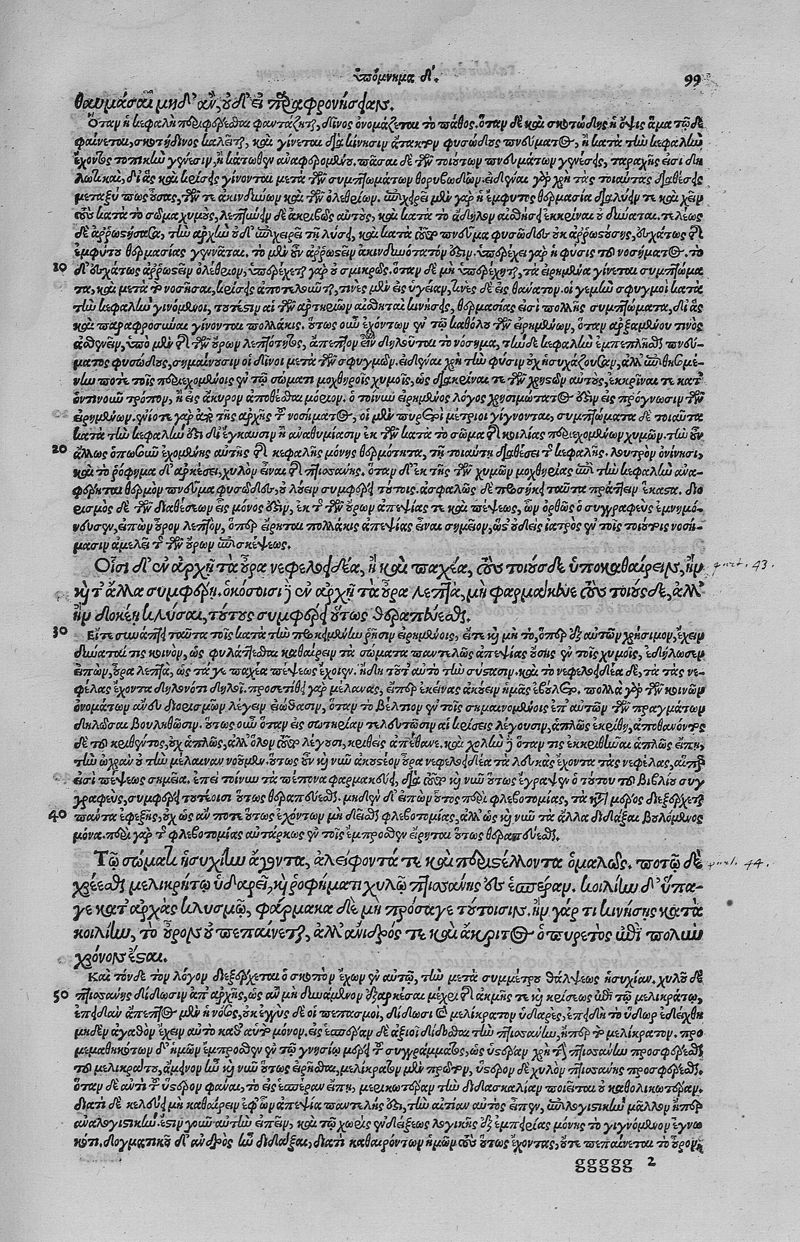 Ὑπόμνημα Δ΄. 99
θαυμάσαι μηδ' ἂν, οὐδ' εἰ παραφρονήσειαν.
Ὅταν ἡ κεφαλὴ περιφέρεσθαι φαντάζηται, δῖνος ὀνομάζεται τὸ πάθος. ὅταν δὲ καὶ σκοτώδης ἡ ὄψις ἅμα τῷδε
φαίνεται, σκοτόδινος καλεῖται, καὶ γίνεται διὰ κίνησιν ἄτακτον φυσώδους πνεύματος, ἢ κατὰ τὴν κεφαλὴν
ἔχοντος τοπικὴν γένεσιν, ἢ κάτωθεν ἀναφερομένου. πᾶσαι δὲ τῶν τοιούτων πνευμάτων γενέσεις, ταραχῆς εἰσι δη
λωτικαὶ, δι' ἃς καὶ κρίσεις γίνονται μετὰ τῶν συμπτωμάτων θορυβωδῶν. εἰδέναι γὰρ χρὴ τὰς τοιαύτας διαθέσεις
μεταξὺ πως οὔσας, τῶν τε ἀκινδύνων καὶ τῶν ὀλεθρίων. ἐπιχειρεῖ μὲν γὰρ ἡ ἔμφυτος θερμασία διαλύειν τε καὶ χεῖν
τοὺς κατὰ τὸ σῶμα χυμοὺς, λεπτύνειν δὲ ἀκριβῶς αὐτοὺς, καὶ κατὰ τὸ ἄδηλον αἰσθήσει ἐκκρῖναι οὐ δύναται. τελέως
δὲ ἀρρωστήσασα, τὴν ἀρχὴν οὐδ' ἐπιχειρεῖ τῇ λύσει, καὶ κατὰ τοῦτο πνεῦμα φυσῶδες οὐκ ἀρρωστούσης, ἐσχάτως τῆς
ἐμφύτου θερμασίας γεννᾶται. τὸ μὲν οὖν ἀρρωστεῖν ἀκινδυνότατόν ἐστιν. ὑπερέχει γὰρ ἡ φύσις τοῦ νοσήματος. τὸ
10 δ' ἐσχάτως ἀρρωστεῖν ὀλέθριον, ὑπερέχεται γὰρ οὐ σμικρῶς. ὅταν δὲ μὴ ὑπερέχηται, τὰ εἰρημένα γίνεται συμπτώμα
τα, καὶ μετὰ τοῦ νοσῆσαι, κρίσεις ἀποτελοῦνται, τινὲς μὲν εἰς ὑγείαν, τινὲς δὲ εἰς θάνατον. οἱ γε μὴν σφυγμοὶ κατὰ
τὴν κεφαλὴν γινόμενοι, τουτέστιν αἱ τῶν ἀρτηριῶν αἰσθηταὶ κινήσεις, θερμασίας εἰσὶ πολλῆς συμπτώματα, δι' ἃς
καὶ παραφροσύναι γίνονται πολλάκις. οὕτως οὖν ἐχόντων ἐν τῷ καθόλου τῶν εἰρημένων, ὅταν ἀρξαμένου τινὸς
ἀσθενεῖν, ὑπὸ μὲν τῆς τῶν οὔρων λεπτότητος, ἄπεπτον εἶναι δηλοῦται τὸ νόσημα, τὴν δὲ κεφαλὴν ἐμπεπλῆσθαι πνεύ-
ματος φυσώδους, σημαίνουσιν οἱ δῖνοι μετὰ τῶν σφυγμῶν. εἰδέναι χρὴ τὴν φύσιν οὐχ ἡσυχάζουσαν, ἀλλ' ἐπιθησομέ-
νην ποτε τοῖς περιεχομένοις ἐν τῷ σώματι μοχθηροῖς χυμοῖς, ὡς διακρῖναι τε τῶν χρηστῶν αὐτοὺς, ἐκκρῖναι τε κατ'
ὁντιναοῦν τρόπον, ἢ εἰς ἄκυρον ἀποθέσθαι μόριον. ὁ τοίνυν εἰρημένος λόγος χρησιμώτατός ἐστιν εἰς πρόγνωσιν τῶν
εἰρημένων. ἐνίοτε γὰρ ἀπὸ τῆς ἀρχῆς τοῦ νοσήματος, οἱ μὲν πυρετοὶ μέτριοι γίγνονται, συμπτώματα δὲ τοιαῦτα
κατὰ τὴν κεφαλὴν ἢ δι' ἔγκαυσιν ἢ ἀναθυμίασιν ἐκ τῶν κατὰ τὸ σῶμα τῆς κοιλίας περιεχομένων χυμῶν. τὴν οὖν
20 ἄλλως ὁπωσοῦν ἐχομένης αὐτῆς τῆς κεφαλῆς μόνης θερμότητα, τῇ τοιαύτῃ διαθέσει τῆς κεφαλῆς. λουτρὸν ὀνίνησι,
καὶ τὸ ῥόφημα δ' ἀρκέσει, χυλὸν εἶναι τῆς πτισάνης. ὅταν δ' ἐκ τῆς τῶν χυμῶν μοχθηρίας ἐπὶ τὴν κεφαλὴν ἀνα-
φέρηται θερμὸν πνεῦμα φυσῶδες, οὐ λούειν συμφέρει τούτοις. ἀσφαλῶς δὲ προσήκει ταῦτα πράττειν ἕκαστα. διο
ρισμὸς δὲ τῶν διαθέσεων εἷς μόνος ἐστὶν, ἐκ τῶν οὔρων ἀπεψίας τε καὶ πέψεως, ὧν ὀρθῶς ὁ συγγραφεὺς ἐμνημό-
νευσεν, εἰπὼν οὖρον λεπτὸν, ὅπερ εἴρηται πολλάκις ἀπεψίας εἶναι σημεῖον, ὡς οὐδεὶς ἰατρὸς ἐν τοῖς τοιούτοις νοσή-
μασιν ἀμελεῖ τῆς τῶν οὔρων ἐπισκέψεως.
Οἷσι δ' ἐν ἀρχῇ τὰ οὖρα νεφελοειδέα, ἢ καὶ παχέα, τοὺς τοιούσδε ὑποκαθαίρειν, ἢν
καὶ τἄλλα συμφέρῃ. ὁκόσοισι δὲ ἐν ἀρχῇ τὰ οὖρα λεπτὰ, μὴ φαρμακεύειν τοὺς τοιούσδε, ἀλλ'
ἢν δοκέῃ κλύσαι, τούτους συμφέρει οὕτως θεραπεύεσθαι.
30 Εἴτε συνάπτει ταῦτα τοῖς κατὰ τὴν προκειμένην ῥῆσιν εἰρημένοις, εἴτε καὶ μὴ τὸ, ὅπερ ἐξ αὐτῶν χρήσιμον, ἔχειν
δύναταί τις κοινὸν, ὡς φυλάττεσθαι καθαίρειν τὰ σώματα παντελῶς ἀπεψίας οὔσης ἐν τοῖς χυμοῖς, ἐδήλωσεν
εἰπὼν, οὖρα λεπτὰ, ὡς τά γε παχέα πέψεως ἔχοι ἂν. ἤδη τοῦτ' αὐτὸ τὴν σύστασιν. καὶ τὸ νεφελοειδέα δὲ, τὰ τὰς νε-
φέλας ἔχοντα δηλονότι δηλοῖ. προσετίθει γὰρ μελαίνας, εἴπερ ἐκείνας ἀκούειν ἡμᾶς ἐβούλετο. πολλὰ γὰρ τῶν κοινῶν
ὀνομάτων ἄνευ διορισμῶν λέγειν εἰώθασιν, ὅταν τὸ βέλτιον ἐν τοῖς σημαινομένοις ἐπ' αὐτῶν τῶν πραγμάτων
δηλῶσαι βουληθῶσιν. οὕτως οὖν ὅταν εἰς σωτηρίαν τελευτῶσιν αἱ κρίσεις λέγουσιν, ἁπλῶς ἐκρίθη, ἀποθανόντος
δὲ τοῦ κριθέντος, οὐχ ἁπλῶς, ἀλλ' ὅλον τοῦτο λέγουσι, κριθεὶς ἀπέθανε. καὶ χολὴν δὲ ὅταν τις ἐκκριθῆναι ἁπλῶς εἴπῃ,
τὴν ὠχρὰν οὐ τὴν μέλαιναν νοοῦμεν. οὕτως οὖν καὶ νῦν ἀκουστέον οὖρα νεφελοειδέα τὰ λευκὰς ἔχοντα τὰς νεφέλας, αἵπερ
εἰσὶ πέψεως σημεῖα. ἐπεὶ τοίνυν τὰ πέπονα φαρμακεύει, διὰ τοῦτο καὶ νῦν οὕτως ἔγραψεν ὁ τούτου τοῦ βιβλίου συγ
γραφεὺς, συμφέρει τουτέοισι οὕτως θεραπεύεσθαι. μηδὲν δ' εἰπὼν οὗτος περὶ φλεβοτομίας, τὰ κατὰ μέρος διεξέρχεται
40 πάντα ἐφεξῆς, οὐχ ὡς ἄν ποτε οὕτως ἐχόντων μὴ δεῖσθαι φλεβοτομίας, ἀλλ' ὡς καὶ νῦν τὰ ἄλλα διδάξαι βουλόμενος
μόνα. περὶ γὰρ τῆς φλεβοτομίας αὐτάρκως ἐν τοῖς ἔμπροσθεν εἴρηται οὕτως θεραπεύεσθαι.
Τῷ σώματι ἡσυχίην ἄγοντα, ἀλείφοντά τε καὶ περιστέλλοντα ὁμαλῶς. ποτῷ δὲ
χρέεσθαι μελικρήτῳ ὑδαρεῖ, καὶ ῥοφήματι χυλῷ πτισάνης ἐς ἑσπέραν. κοιλίην δ' ὕπα-
γε κατ' ἀρχὰς κλυσμῷ, φάρμακα δὲ μὴ πρόσαγε τούτοισιν. ἢν γάρ τι κινήσῃς κατὰ
κοιλίην, τὸ οὖρον οὐ πεπαίνεται, ἀλλ' ἀνιδρός τε καὶ ἄκριτος ὁ πυρετὸς ἐπὶ πολὺν
χρόνον ἔσται.
Καὶ τόνδε τὸν λόγον διεξέρχεται ὁ σκοπὸν ἔχων ἐν αὐτῷ, τὴν μετὰ συμμέτρου θάλψεως ἡσυχίαν. χυλοῦ δὲ
50 πτισάνης δίδωσιν ἀπ' ἀρχῆς, ὡς ἂν μὴ δυνάμενον ἐξαρκέσαι μέχρι τῆς ἀκμῆς τε καὶ κρίσεως ἐπὶ τῷ μελικράτῳ,
ἐπειδὰν ἄπεπτος μὲν ᾖ νόσος, οὐκ ἐγγὺς δὲ οἱ πεπασμοὶ, δίδωσι τὸ μελίκρατον ὑδαρὲς, ἐπειδὴ τὸ ὕδωρ ἐδείχθη
μηδὲν ἀγαθὸν ἔχειν αὐτὸ καθ' αὑτὸ μόνον. εἰς ἑσπέραν δὲ ἀξιοῖ δίδοσθαι τὴν πτισάνην, ἤπερ τὸ μελίκρατον. προ
μεμαθηκότων δ' ἡμῶν ἔμπροσθεν ἐν τῷ γνησίῳ μέρει τοῦ συγγράμματος, ὡς ὕστερον χρὴ τῆς πτισάνην προσφέρεσθαι
τοῦ μελικράτου, ἄμεινον ἦν καὶ νῦν οὕτως εἰρῆσθαι, μελίκρατον μὲν πρῶτον, ὕστερον δὲ χυλὸν πτισάνης προσφέρεσθαι.
ὅταν δὲ ἀντὶ τοῦ ὕστερον φάναι, τὸ εἰς ἑσπέραν εἴπῃ, μερικωτέραν τὴν διδασκαλίαν ποιεῖται οὐ καθολικωτέραν.
διατὶ δὲ κελεύει μὴ καθαίρειν ἐφ' ὧν ἀπεψία παντελής ἐστι, τὴν αἰτίαν αὐτὸς εἶπεν, ἐπιλογιστικὴν μᾶλλον ἤπερ
ἀναλογιστικήν. ἔστιν γοῦν αὐτὴν εἰπεῖν, καὶ τῷ χωρὶς ἐνδείξεως λογικῆς ἐξ ἐμπειρίας μόνης τὸ γιγνόμενον ἐγνω
κότι. δογματικοῦ δ' ἀνδρὸς ἦν διδάξαι, διατὶ καθαιρόντων ἡμῶν τοὺς οὕτως ἔχοντας, οὔτε πεπαίνεται τὸ οὖρον,
ggggg 2